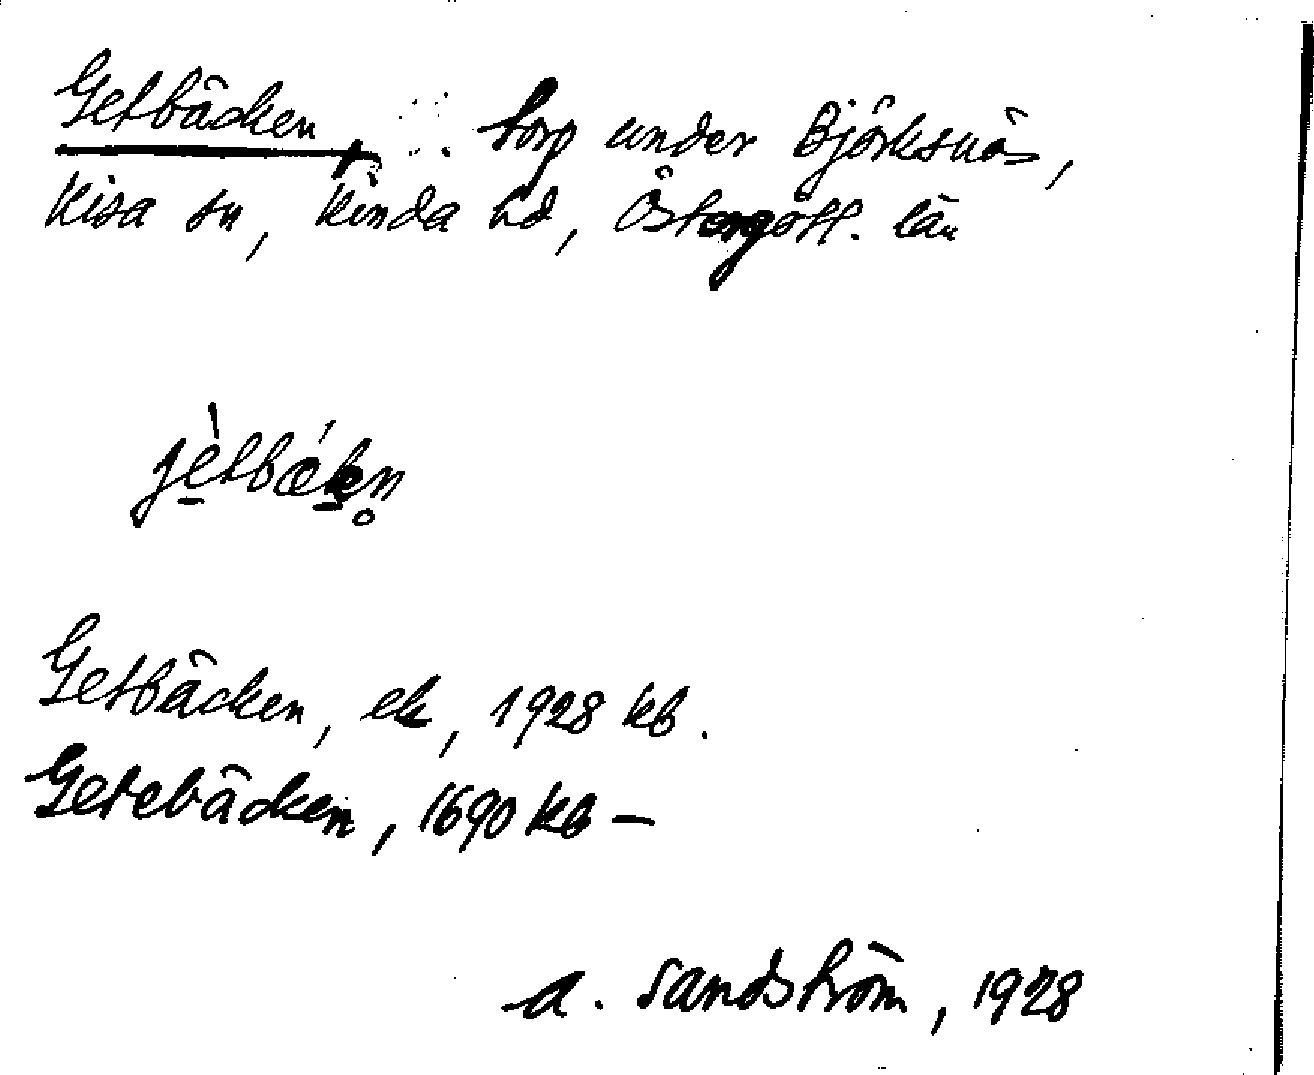 Getbäcken, torp under Björksnäs,
Kisa sn, Kinda hd, Östergötl. län
jètbǽkn̥
Getbäcken, ek, 1928 kb.
Getebäcken, 1690 kb —
A. Sandström, 1928